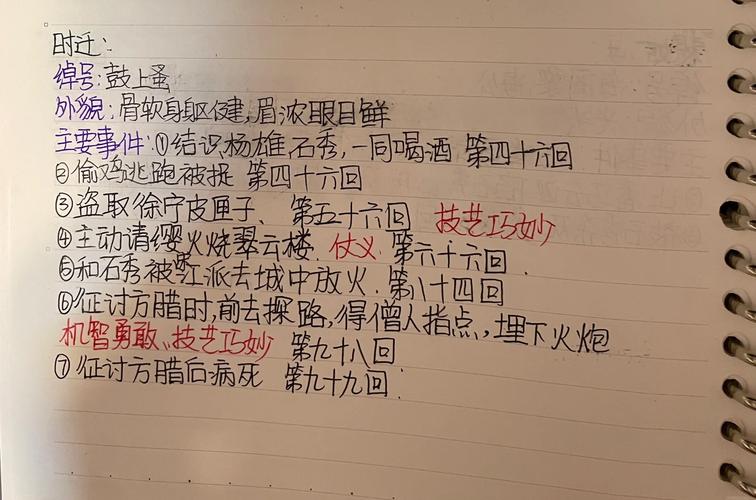 时迁：
绰号：鼓上蚤
外貌：骨软身躯健，眉浓眼目鲜
主要事件：①结识杨雄石秀，一同喝酒 第四十六回
②偷鸡逃跑被捉 第四十六回
③盗取徐宁皮匣子、第五十六回 技艺巧妙
④主动请缨火烧翠云楼. 仗义 第六十六回
⑤和石秀被宋江派去城中放火. 第八十四回
⑥征讨方腊时,前去探路,得僧人指点，埋下火炮
机智勇敢、技艺巧妙 第九十八回
⑦征讨方腊后病死 第九十九回.